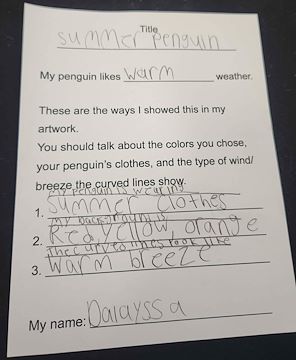 Title
summer penguin
My penguin likes warm weather.
These are the ways I showed this in my
artwork.
You should talk about the colors you chose,
your penguin's clothes, and the type of wind/
breeze the curved lines show.
my penguin is wearing
1. Summer clothes
my background is
2. Red, yellow, orange
the curved lines look like
3. Warm breeze
My name: Dalayssa